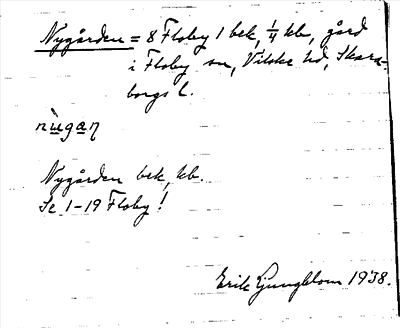 Nygården = 8 Floby 1 bek, 1/4 kb, gård
i Floby sn, Vilske hd, Skara-
borgs l.
nùgaη
Nygården bek, kb.
Se 1-19 Floby!
Erik Ljungblom 1938.